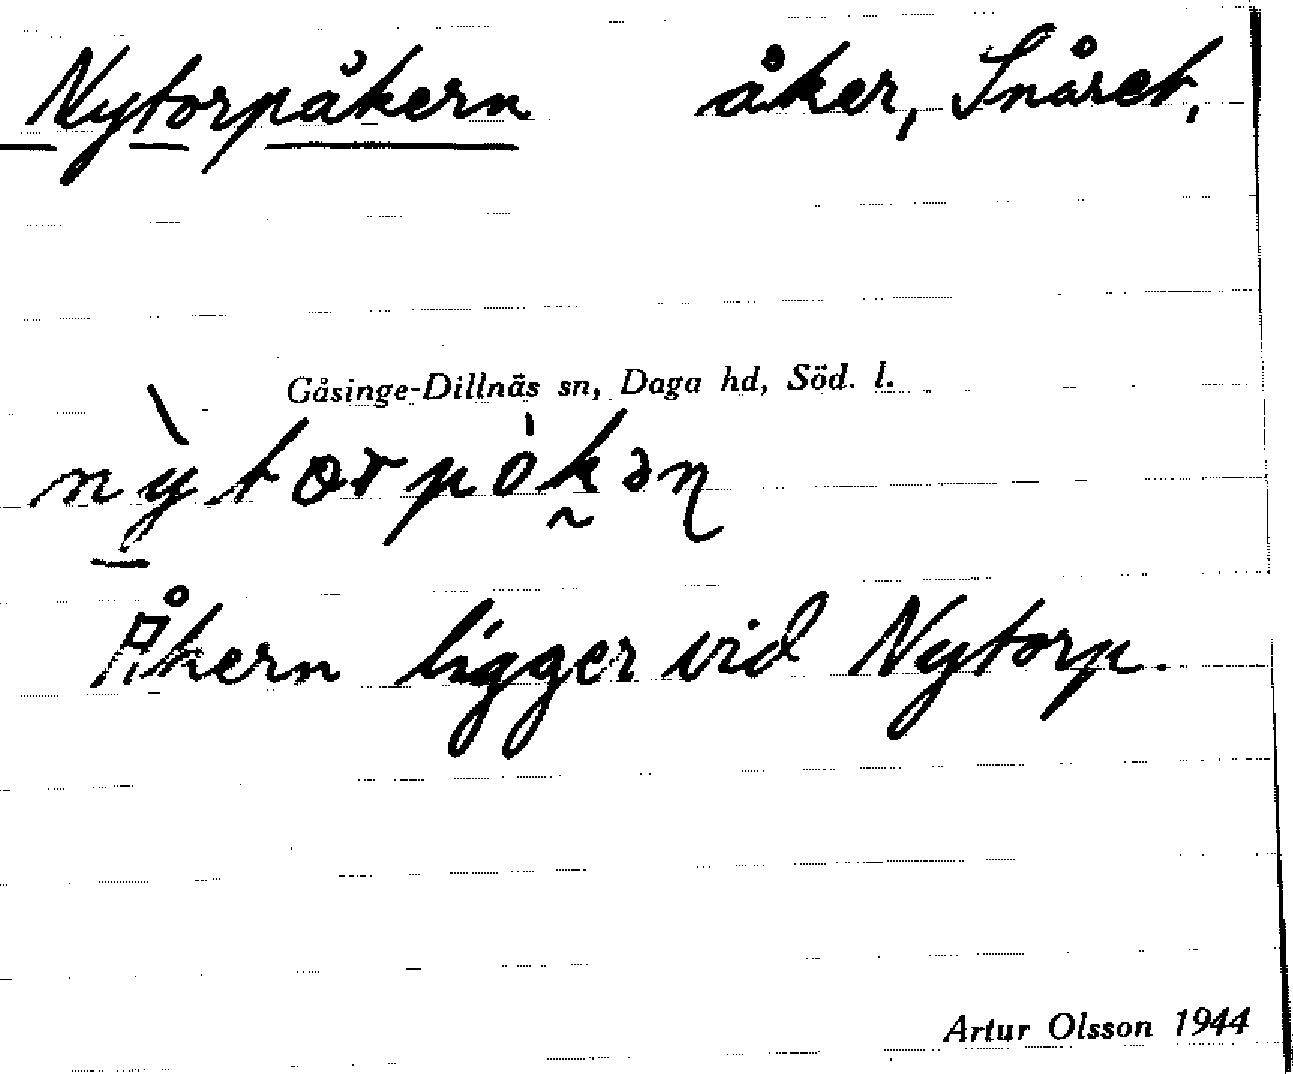 Nytorpåkern åker, Snåret,
Gåsinge-Dillnäs sn, Daga hd, Söd. l.
nỳ̠torpók̰əɳ
Åkern ligger vid Nytorp.
Artur Olsson 1944